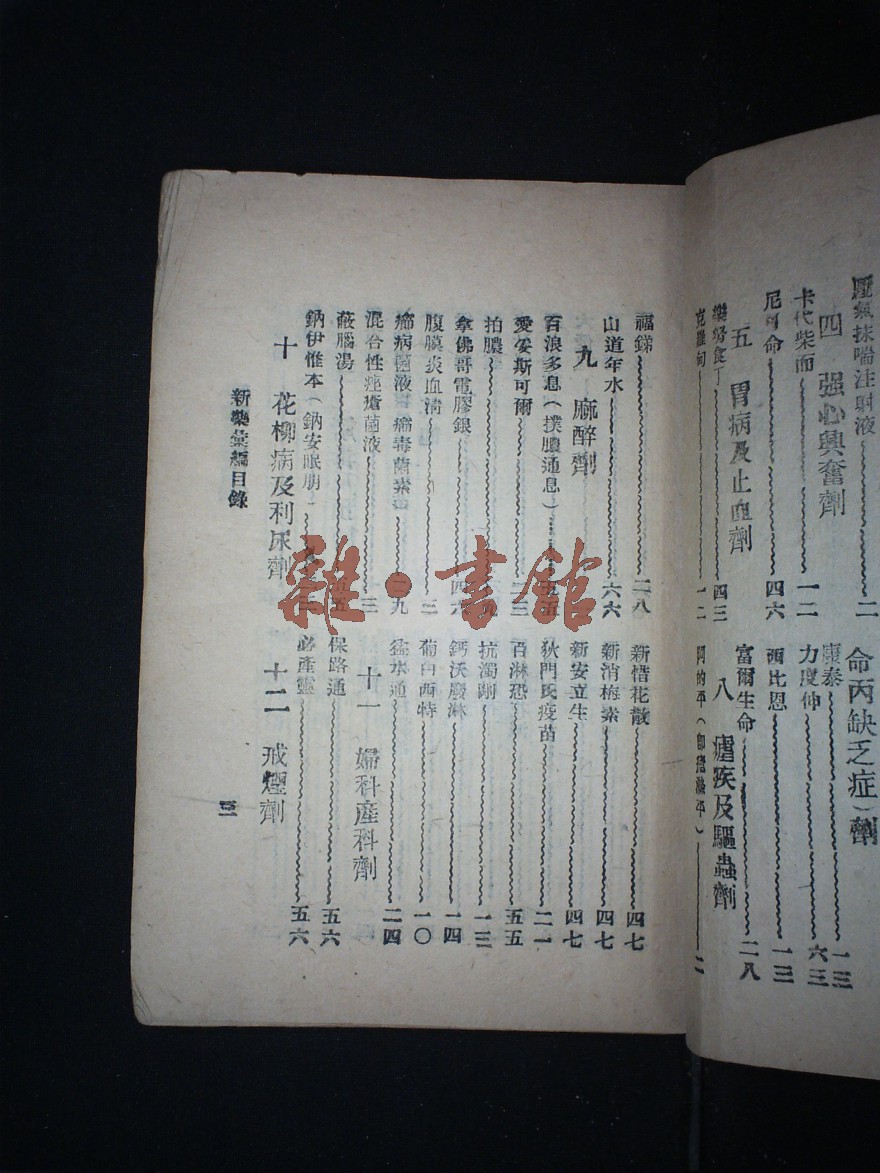 壓氣抹喘注射液 二
四 强心興奮劑
卡代柴而 一二
尼可命 四六
五 胃病及止血劑
四三
一二
命丙缺乏症）劑
康泰 一三
力度伸 六三
西比恩 一三
富爾生命 二八
八 瘧疾及驅蟲劑
阿的平 二
福銻 二八
山道年水 六六
九 麻醉劑
百浪多息（撲膿通息）
愛安斯可爾 二三
拍膿
拿佛哥電膠銀 四六
腹膜炎血清 三
病菌液 毒菌素 一九
混合性痤瘡菌液 三
蔽腦湯 五五
鈉伊惟本（鈉安眠朋）
十 花柳病及利尿劑
新惜花散 四七
新消梅素 四七
新安立生 四七
狄門氏疫苗 二一
百淋恐 五五
抗濁剛 一三
鈣沃廢淋 一四
葡白西特 一〇
猛水通 二四
十一 婦科產科劑
保路通 五六
必產靈 五六
十二 戒煙劑
新藥彙編目錄
三
雜·書館